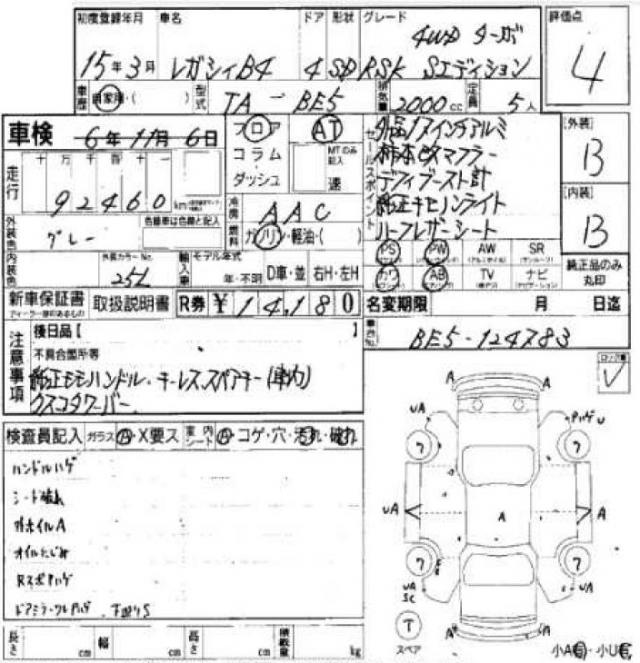 初度登録年月 車名 ドア 形状 グレード 評価点
4WD ターボ
15年3月 レガシィB4 4 SD RSK Sエディション 4
車歴 自家用・( ) 型式 TA-BE5 排気量 2000cc 定員 5人
車検 6年11月6日 フロア AT セールスポイント 社外17インチアルミ [外装]
コラム MTのみ記入 柿本改マフラー B
走行 十万千百十一 ダッシュ 速 デフィブースト計
92460km 冷房 AAC 純正キセノンライト [内装]
外装色 グレー 色替車は色替と記入 燃料 ガソリン・軽油・( ) ハーフレザーシート B
内装色 外装カラーNo. 25L 輸入車 モデル年式 年・不明 D車・並 右H・左H
PS PW AW SR
カワ AB TV ナビ 純正品のみ丸印
新車保証書 取扱説明書 R券 ¥14,180 名変期限 月 日迄
ディーラー印のあるもの
注意事項 後日品[ ] 車台No. BE5-124783
不具合箇所等
純正モモハンドル・キーレス、スペアキー(車内)
クスコタワーバー
検査員記入 ガラス A・X要ス 室内シート A・コゲ・穴・汚れ・破れ
ハンドルハゲ
シート破れ
オイルにじみ
ドアミラーウレハゲ、下回りS
長さ cm 幅 cm 高さ cm 積載量 kg
A A
UA ハゲU
? ?
UA A A
? ?
UA SC UA
T A A
スペア 小A有・小U有